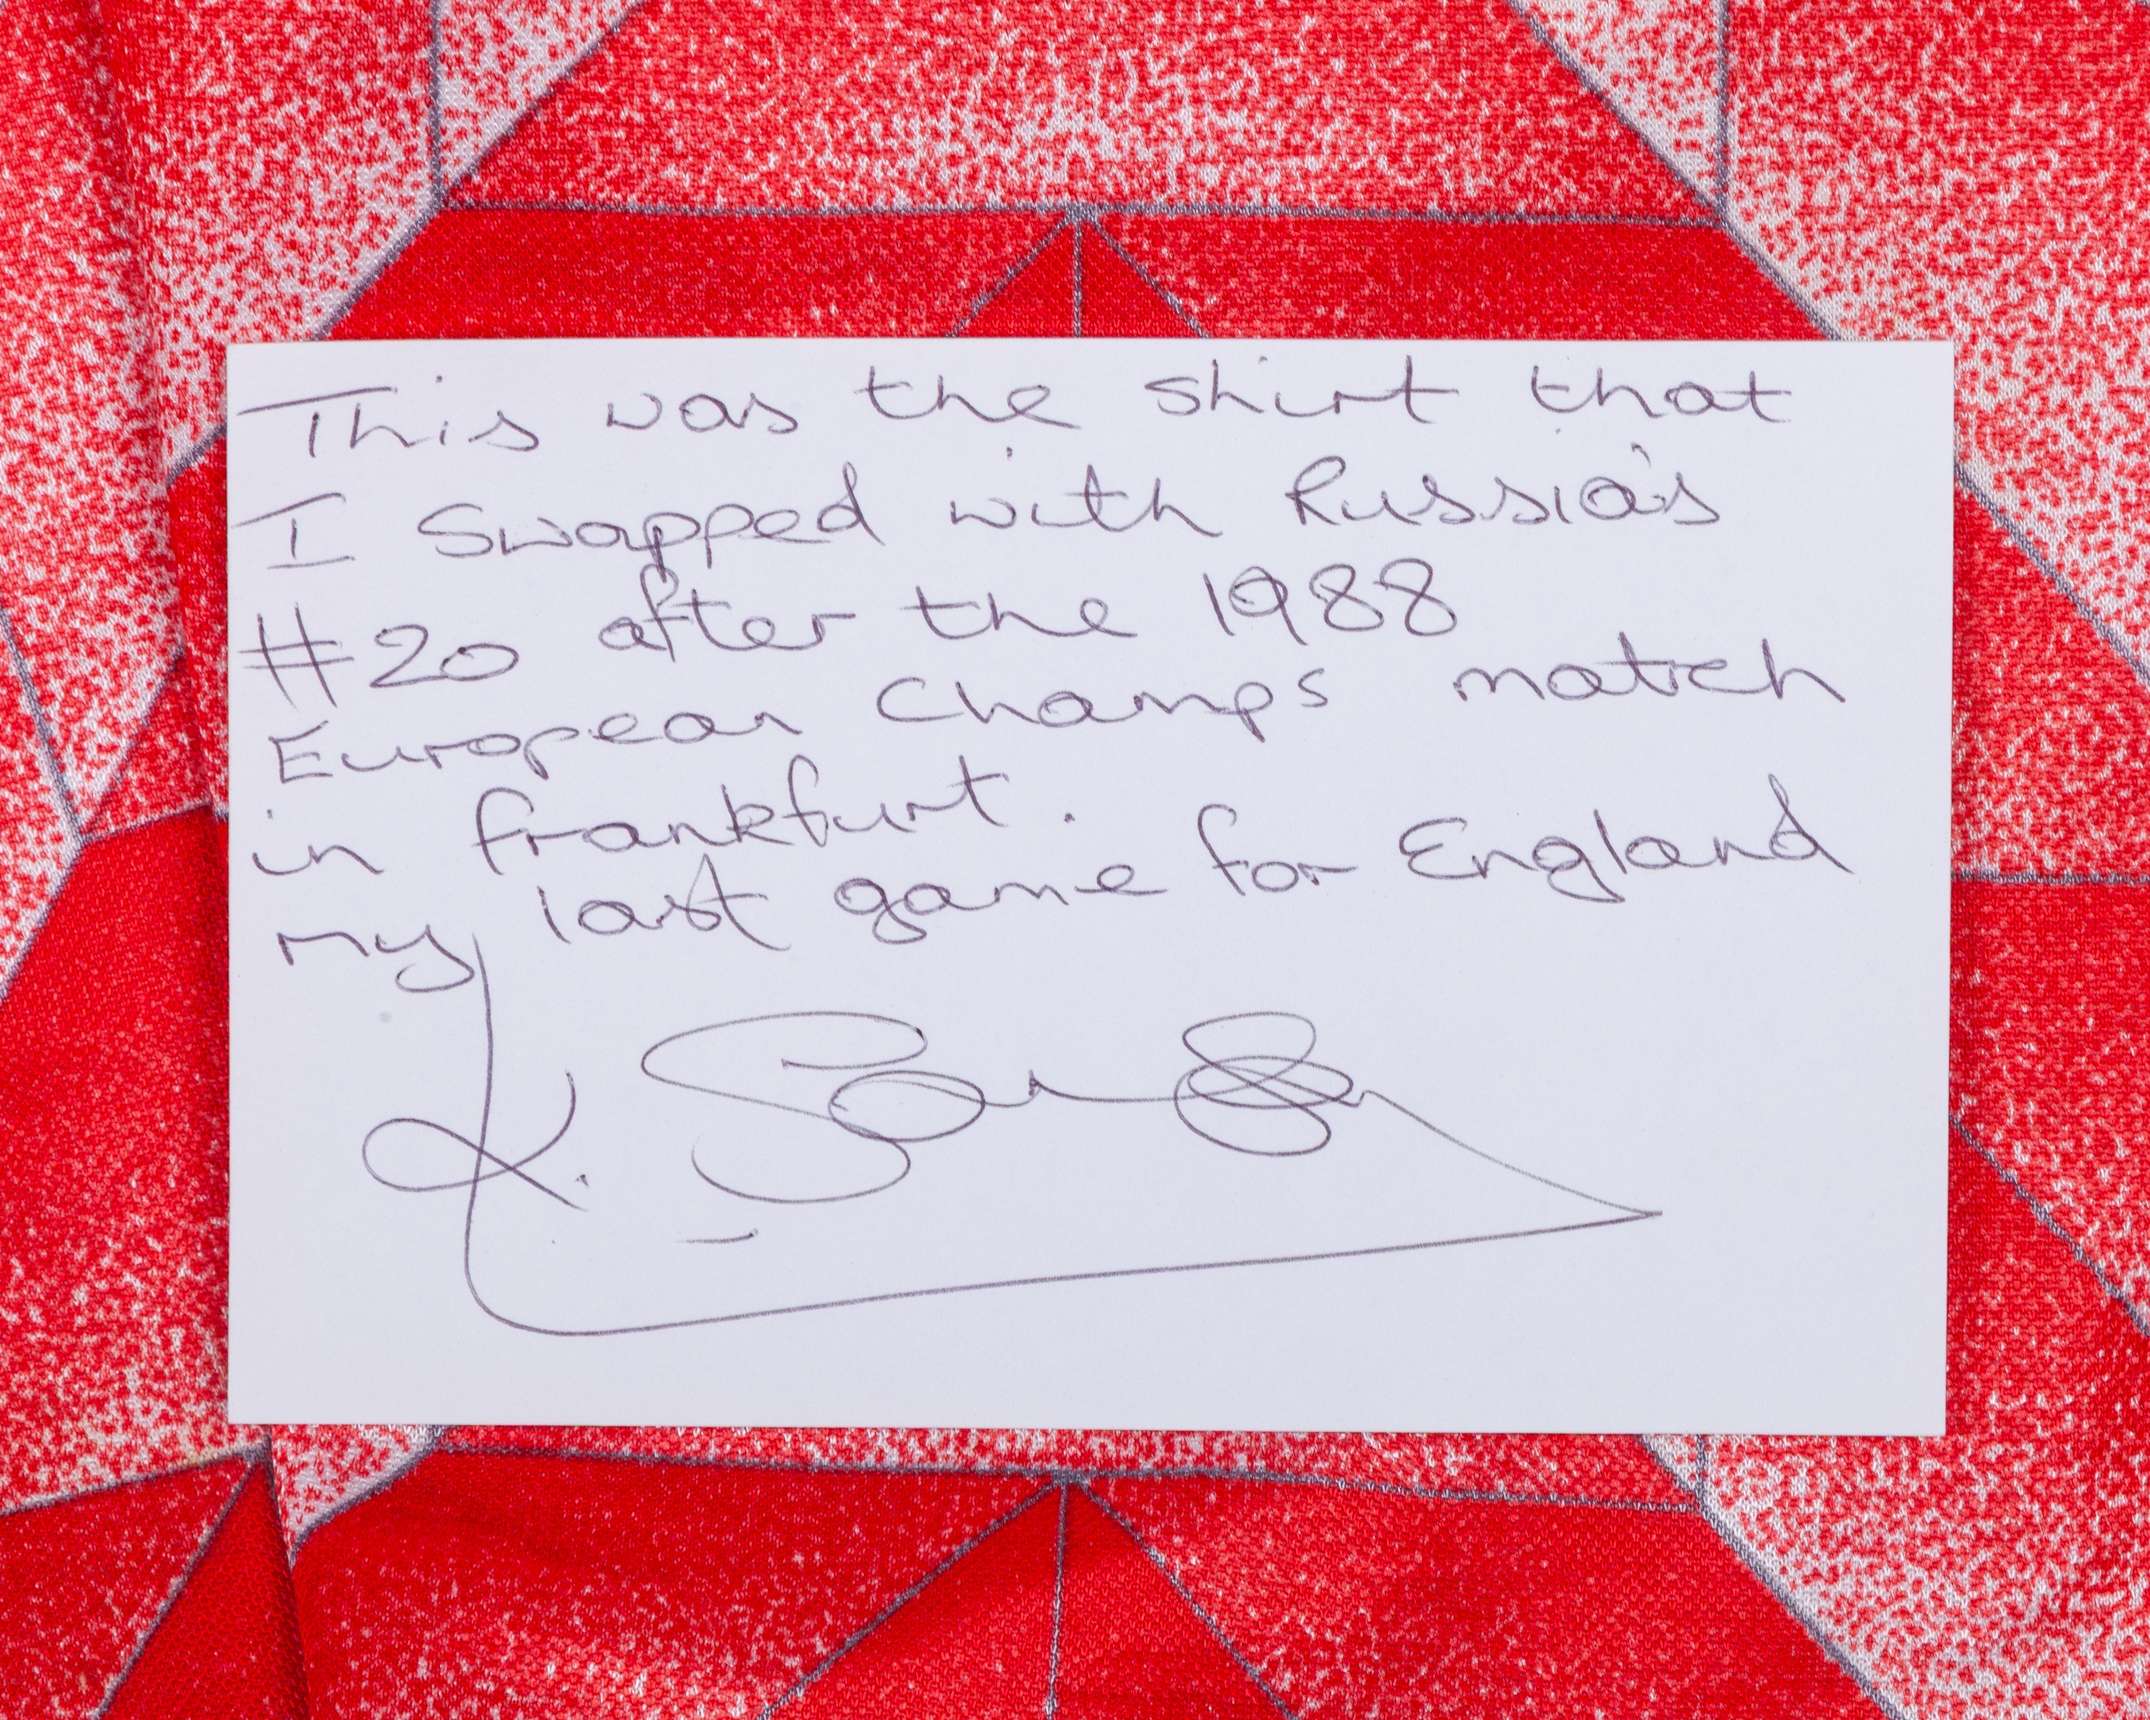 This was the shirt that
I swapped with Russia's
#20 after the 1988
European Champs match
in Frankfurt.
my last game for England
K. Sansom